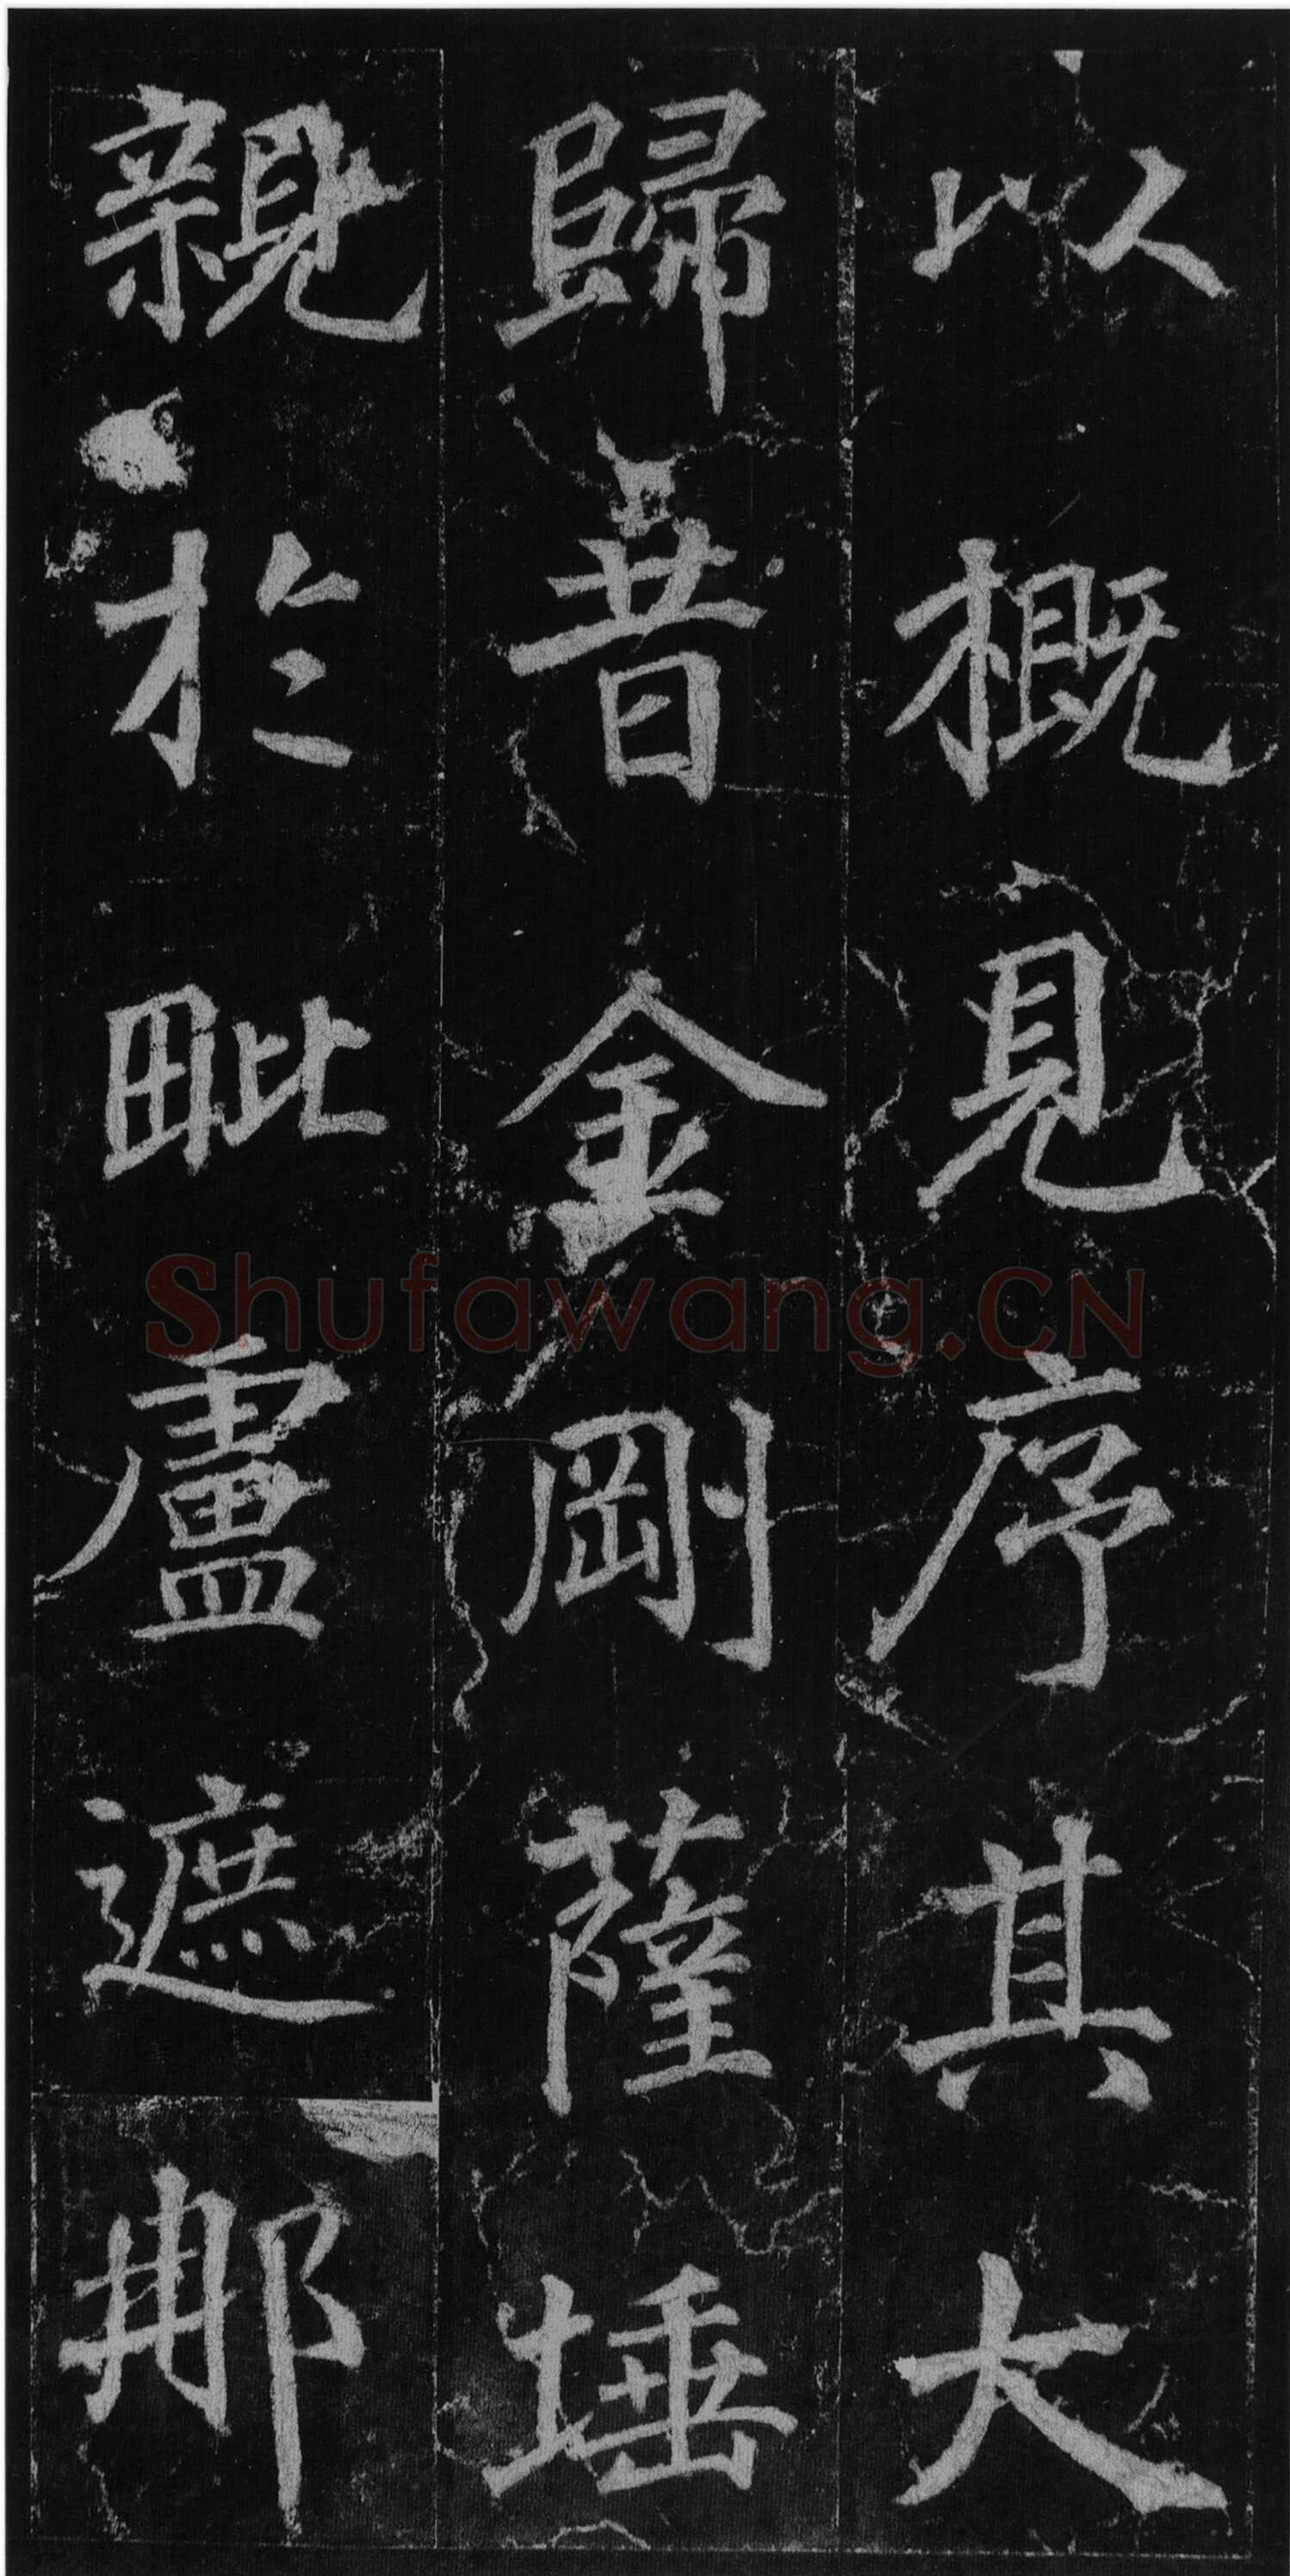 以概見序其大
歸昔金剛薩埵
親於毗盧遮那
Shufawang.CN